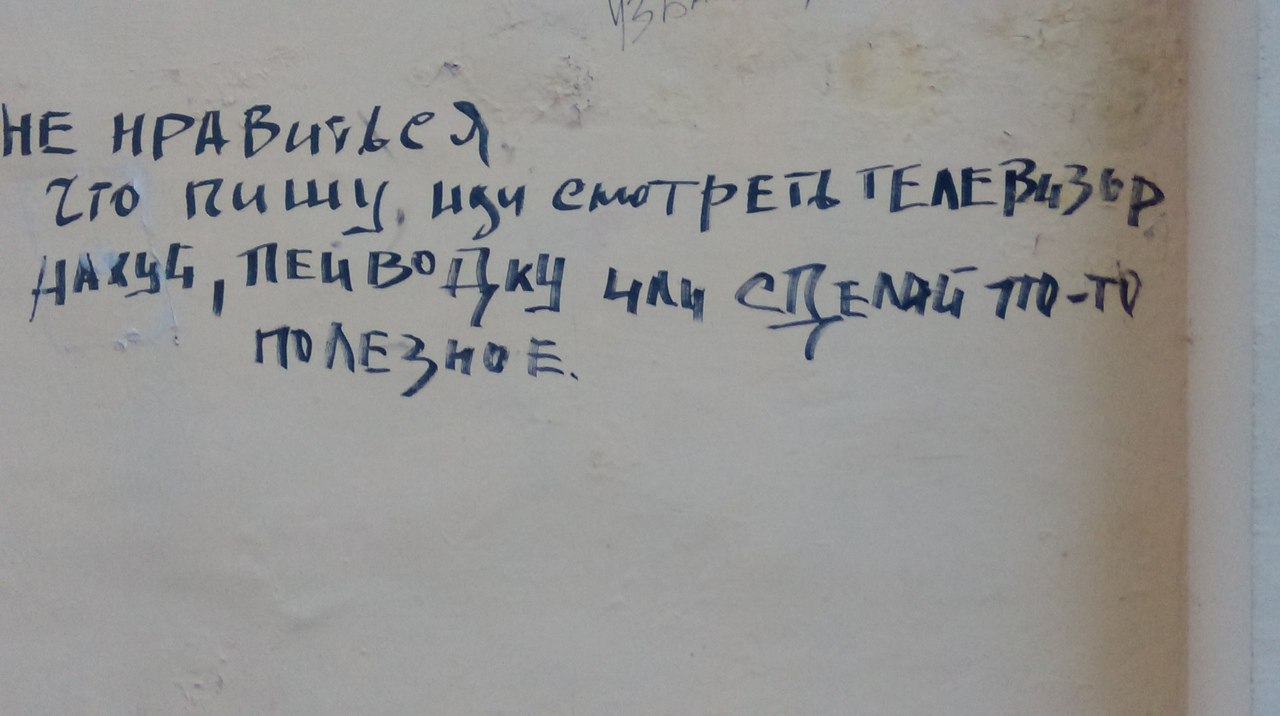 НЕ НРАВиться
что пишу, иди смотреть ТЕЛЕВизор
нахуй, ПЕй ВОДку или СДЕЛАй то-то
ПОЛЕЗНОЕ.